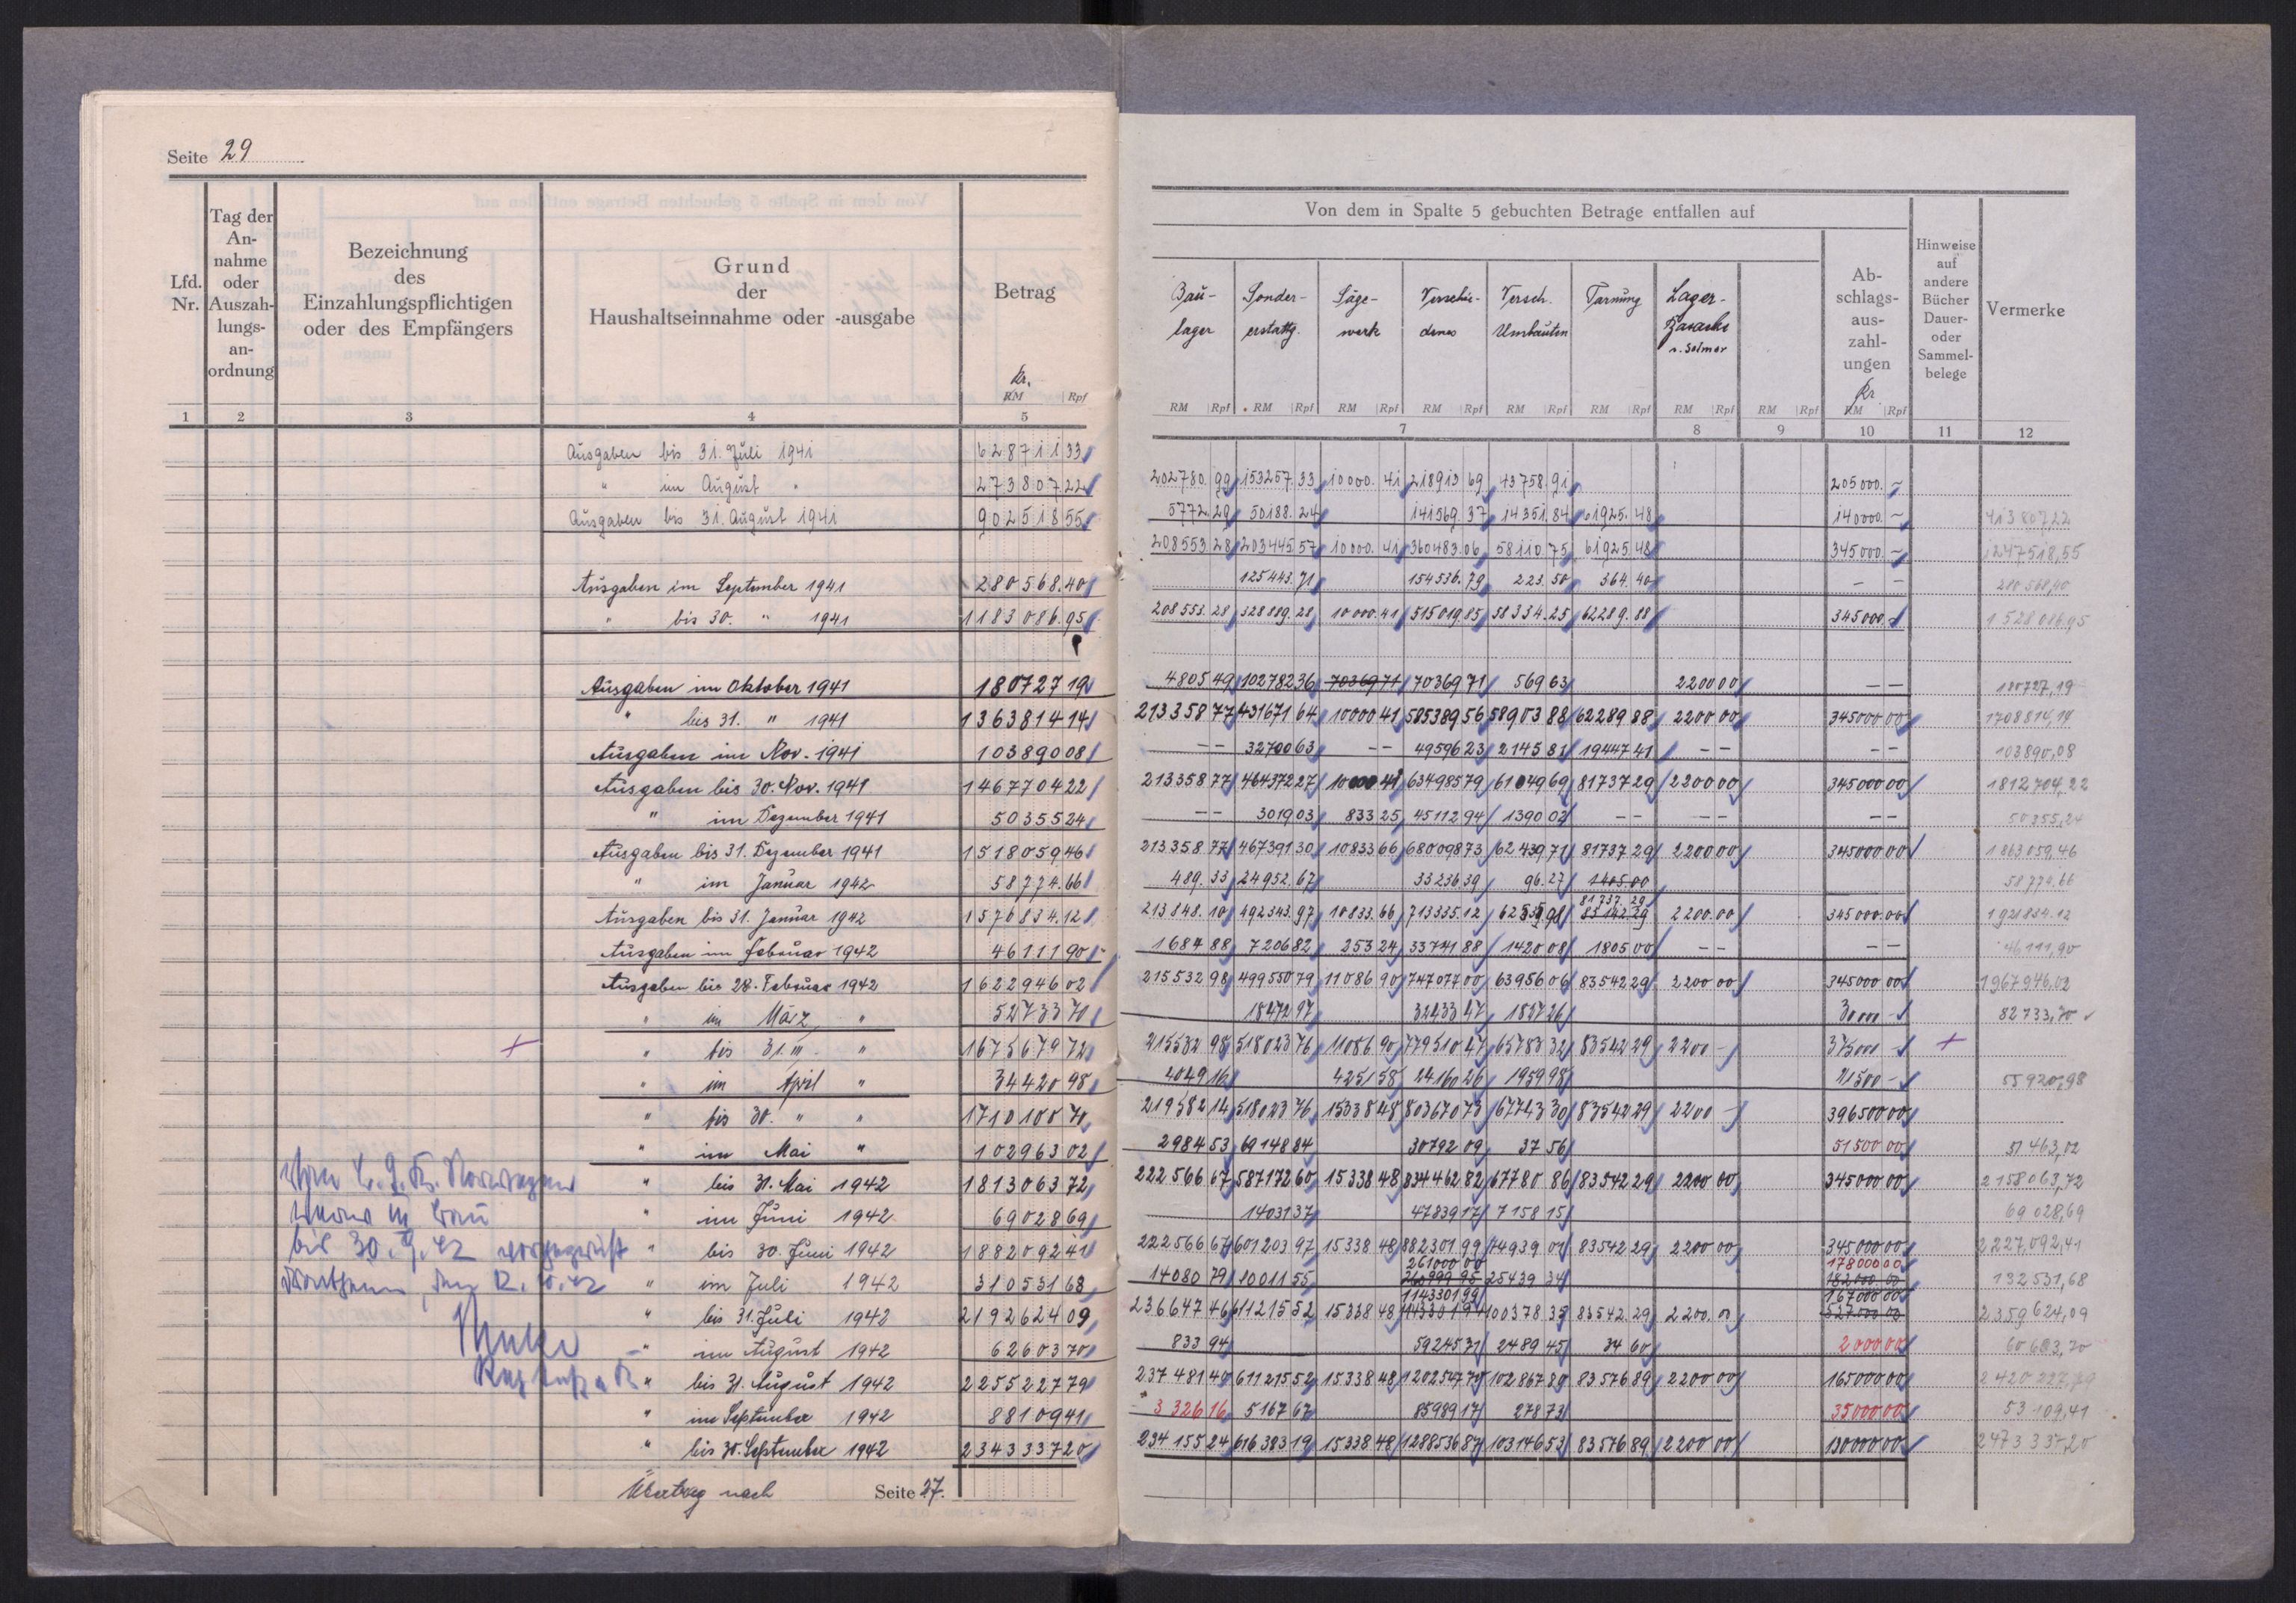 Seite 29
Lfd. Nr.
Tag der An- nahme oder Auszah- lungs- an- ordnung
Bezeichnung des Einzahlungspflichtigen oder des Empfängers
Grund der Haushaltseinnahme oder -ausgabe
Betrag
Kr.
RM Rpf
1 2 3 4 5
Ausgaben bis 31. Juli 1941 628711 33
" im August " 273807 22
Ausgaben bis 31. August 1941 902518 55
Ausgaben im September 1941 280568.40
" bis 30. " 1941 1183086.95
Ausgaben im Oktober 1941 180727 19
" bis 31. " 1941 1363814 14
Ausgaben im Nov. 1941 103890 08
Ausgaben bis 30. Nov. 1941 1467704 22
" im Dezember 1941 50355 24
Ausgaben bis 31. Dezember 1941 1518059 46
" im Januar 1942 58774.66
Ausgaben bis 31. Januar 1942 1576834.12
Ausgaben im Februar 1942 46111 90
Ausgaben bis 28. Februar 1942 1622946 02
" im März " 52733 70
" bis 31. III. " 1675679 72
" im April " 34420 98
" bis 30. " " 1710100 70
" im Mai " 102963 02
" bis 31. Mai 1942 1813063 72
" im Juni 1942 69028 69
" bis 30. Juni 1942 1882092 41
" im Juli 1942 310531 68
" bis 31. Juli 1942 2192624 09
" im August 1942 62603 70
" bis 31. August 1942 2255227 79
" im September 1942 88109 41
" bis 30. September 1942 2343337 20
Übertrag nach Seite 37.
bis 30. 9. 42
12. 10. 42
Von dem in Spalte 5 gebuchten Betrage entfallen auf
Bau- lager
Sonder- erstattg.
Säge- werk
Verschie- denes
Versch. Umbauten
Tarnung
Lager- Baracke
Ab- schlags- aus- zahl- ungen
Kr.
Hinweise auf andere Bücher Dauer- oder Sammel- belege
Vermerke
RM Rpf RM Rpf RM Rpf RM Rpf RM Rpf RM Rpf RM Rpf RM Rpf RM Rpf
7 8 9 10 11 12
202780.99 153257.33 10000.41 218913 69 43758.91 205000.-
5772.29 50188.24 141569.37 14351.84 61925.48 140000.- 413807.22
208553.28 203445.57 10000.41 360483.06 58110.75 61925.48 345000.- 1247518,55
125443.71 154536.79 223.50 364.40 - - 280568,40
208553.28 328889.28 10000.41 515019.85 58334.25 62289.88 345000.- 1528086,95
4805 49 102782 36 70369 71 70369 71 569 63 2200 00 - - 180727,19
213358 77 431671 64 10000 41 585389 56 58903 88 62289 88 2200 00 345000 00 1708814,14
- - 32700 63 - - 49596 23 2145 81 19447 41 - - - - 103890,08
213358 77 464372 27 10000 41 634985 79 61049 69 81737 29 2200 00 345000 00 1812704,22
- - 3019 03 833 25 45112 94 1390 02 - - - - - - 50355,24
213358 77 467391 30 10833 66 680098 73 62439 71 81737 29 2200 00 345000 00 1863059,46
489.33 24952.67 33236 39 96.27 1405.00 58774.66
81737.29
213848.10 492343.97 10833.66 713335.12 62535.98 83142.29 2200.00 345000.00 1921834.12
1684 88 7206 82 253 24 33741 88 1420 08 1805 00 - - - - 46111,90
215532 98 499550 79 11086 90 747077 00 63956 06 83542 29 2200 00 345000 00 1967946,02
18472 97 32433 47 1827 26 30000 - 82733,70
215532 98 518023 76 11086.90 779510 47 65783 32 83542 29 2200 - 375000 -
4049 16 4251 58 24160 26 1959 98 21500 - 55920,98
219582 14 518023 76 15338 48 803670 73 67743 30 83542 29 2200 - 396500 00
2984 53 69148 84 30792 09 37 56 51500 00 51463,02
222566 67 587172 60 15338 48 834462 82 67780 86 83542 29 2200 00 345000 00 2158063,72
14031 37 47839 17 7158 15 69028,69
222566 67 601203 97 15338 48 882301 99 74939 01 83542 29 2200 00 345000 00 2227,092,41
261000 00 178000 00
14080 79 10011 55 260999 95 25439 34 182000.00 132531,68
1143301 99 167000 00
236647 46 611215 52 15338 48 100378 35 83542.29 2200.00 527000 00 2359624,09
833 94 59245 71 2489 45 34 60 2000 00 60603,70
237481 40 611215 52 15338 48 1202547 70 102867 80 83576 89 2200 00 165000 00 2420227,79
3326 16 5167 67 85989 17 278 73 35000 00 53109,41
234155 24 616383 19 15338 48 1288536 87 103146 53 83576 89 2200 00 130000 00 2473337,20